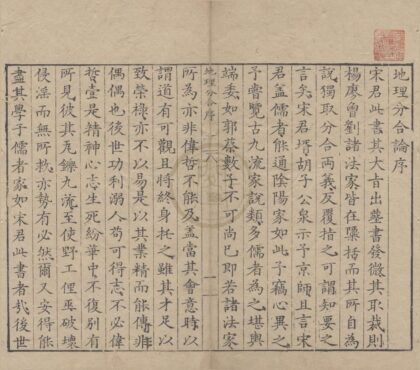 地理分合論序
宋君此書其大旨出塟書發微其取裁則
楊廖曾劉諸法家皆在檃括而其所自為
說獨取分合兩義反覆指之可謂知要之
言矣宋君壻胡子公泉示予京師且言宋
君盖儒者能通陰陽家如此予竊心異之
予嘗覽古九流家說類多儒者為之堪輿
端委如郭蔡數子不可尚已即若諸法家
地理分合序
一
所為亦非偉哲不能及盖當其會意時以
謂道有可觀且將終身托之雖其才足以
致榮祿亦不以易是以其業精而能傳非
偶偶也後世功利溺人苟可得志不必偉
哲壹是精神心志生死紛華中不復別有
所見彼其瓦鑠九流至使野工俚巫破壞
侵淫而無所救亦勢有必然爾又安得能
盡其學于儒者家如宋君此書者哉後世